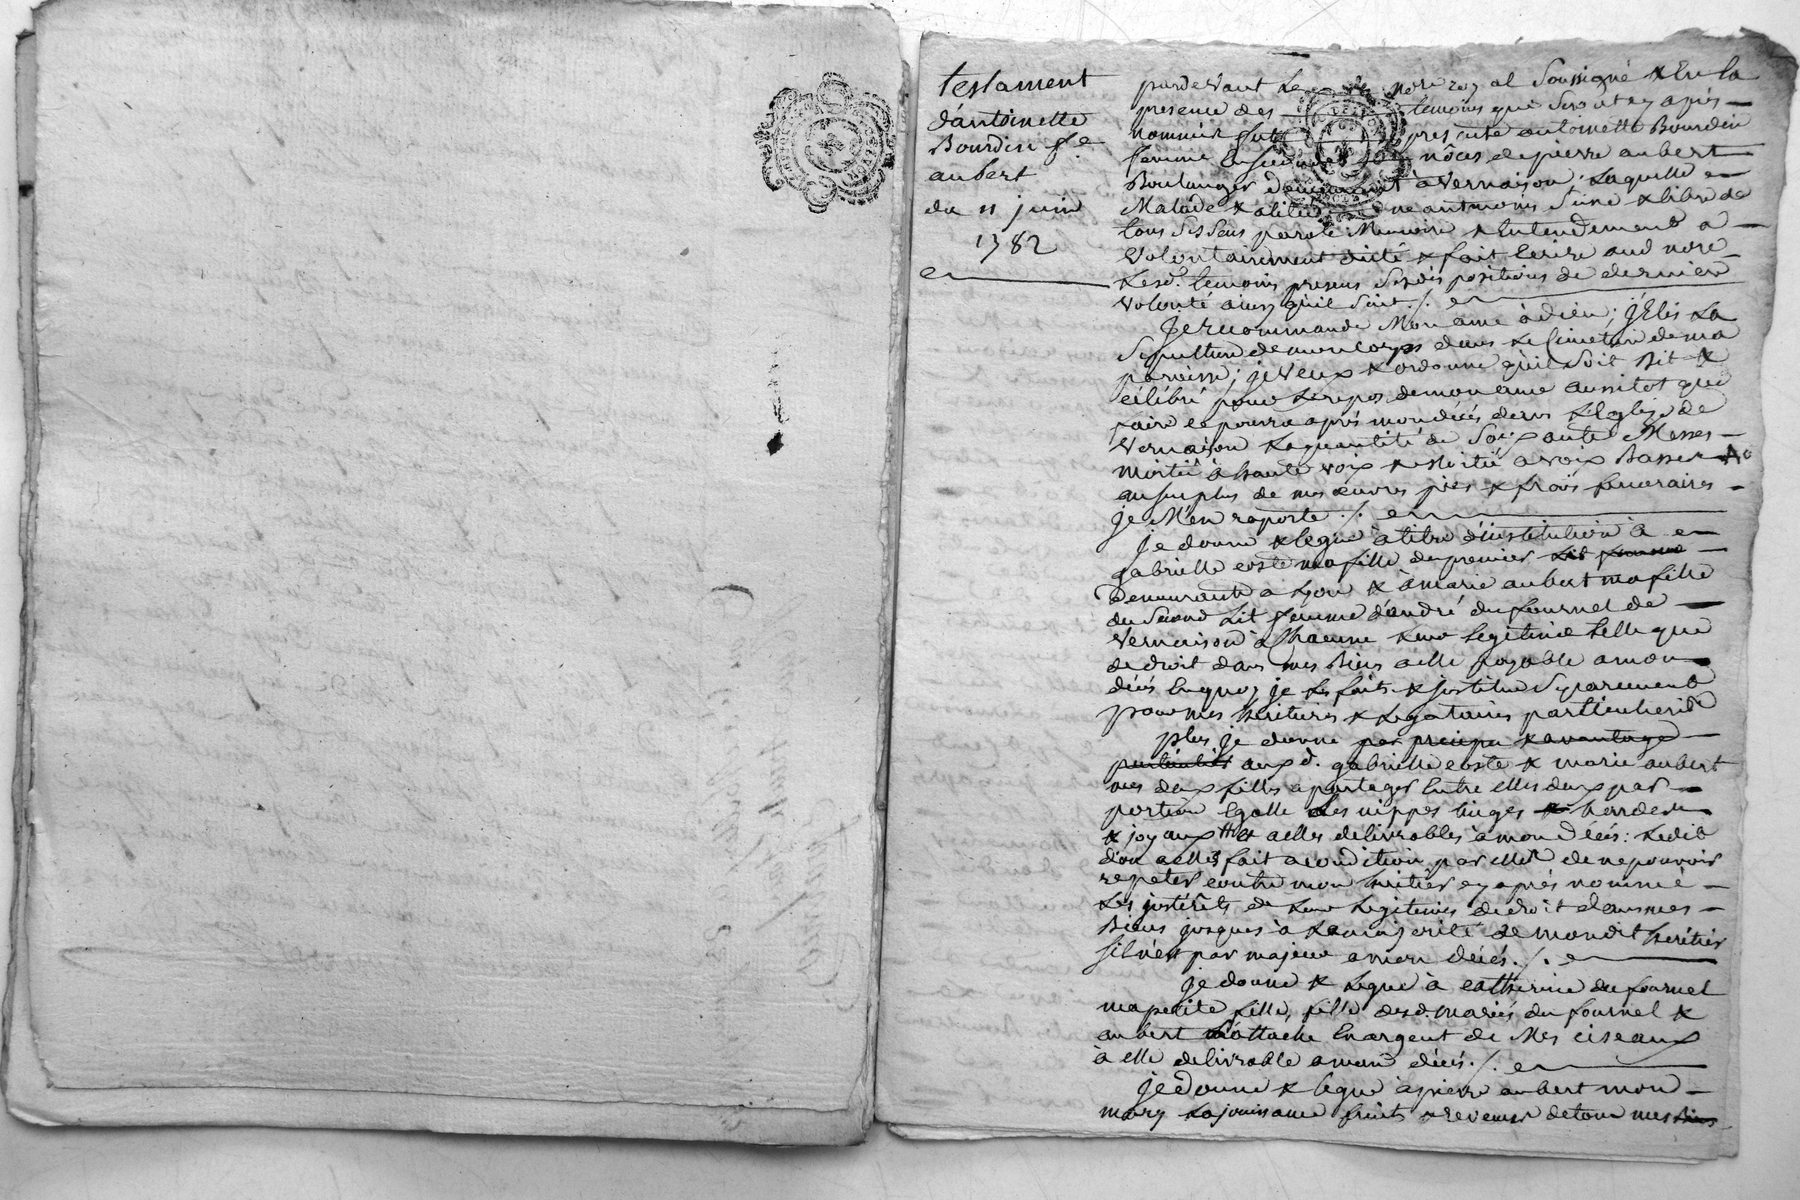 testament
d'antoinette
Bourdin fe
aubert
du 11 juin
1782
pardevant Le nore royal Soussigné & En la
presence des temoins qui Seront cy après
nommés fut presente antoinette Bourdin
femme En secondes nôces de pierre aubert
Boulanger demeurant à Vernaison, Laquelle
Malade & alitée neantmoins Saine & libre de
tous Ses Sens parole Memoire & Entendement a
Volontairement dicté & fait Ecrire aud nore
Lesd. temoins presens Ses dispositions de derniere
Volonté ainsy qu'il Suit ./.
Je recommande Mon ame à dieu; j'Elis La
Sepulture de mon Corps dans Le Cimetiere de ma
paroisse; je Veux & ordonne qu'il Soit Dit &
célébré pour Le repos de mon ame aussitot que
faire ce pourra après mon décés dans L'Eglise de
Vernaison La quantité de Soixante Messes
moitié à haute voix & Moitié a voix Basse
au Surplus de mes œuvres pies & frais funeraires
je M'en raporte ./.
Je donne & legue à titre d'institution à
gabrielle coste ma fille du premier Lit
Demeurante a Lyon & à marie aubert ma fille
du Second Lit femme d'andré du fournel de
Vernaison à Chacune Leur Legitime telle que
de droit dans mes Biens a elle payable a mon
décés En quoy je Les fais & institue Séparement
pour mes heritieres & Legataires particulieres
plus je donne par preciput & avantage
aux d. gabrielle coste & marie aubert
mes deux filles a partager Entre elles deux par
portion Egalle Les nippes linges & hardes
& joyaux a elles delivrables à mon décés: Ledit
don a elles fait a condition par elles de ne pouvoir
repeter contre mon heritier cy après nommé
Les interêts de Leur Legitimes de droit dans mes
Biens jusques à La majorité de mondit heritier
s'il n'est pas majeur a mon décés ./.
je donne & Legue à catherine du fournel
ma petite fille, fille desd. mariés du fournel &
aubert L'attache En argent de Mes ciseaux
à elle delivrable a mon décés ./.
je donne & legue à pierre aubert mon
mary La jouissance fruits & revenus de tous mes Biens